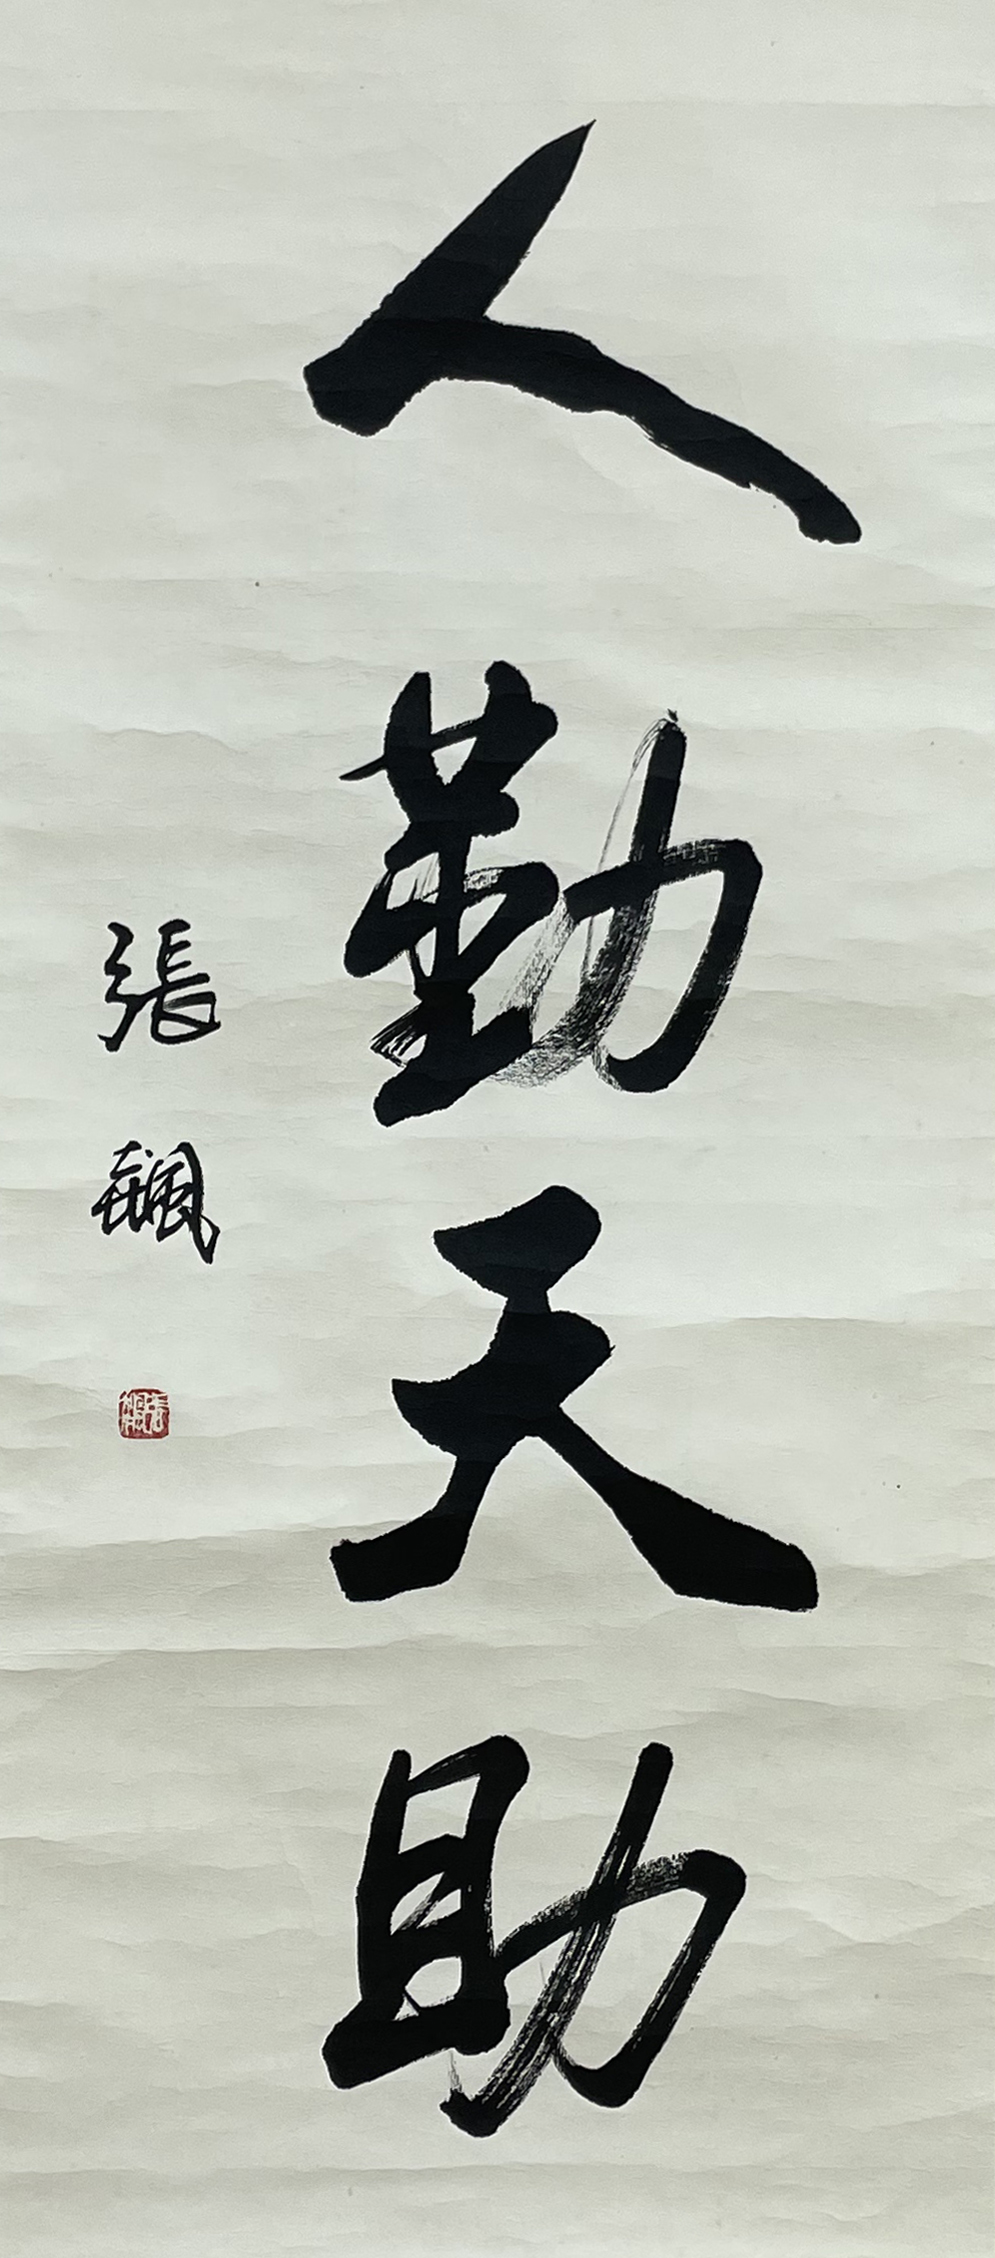 人勤天助
張飆